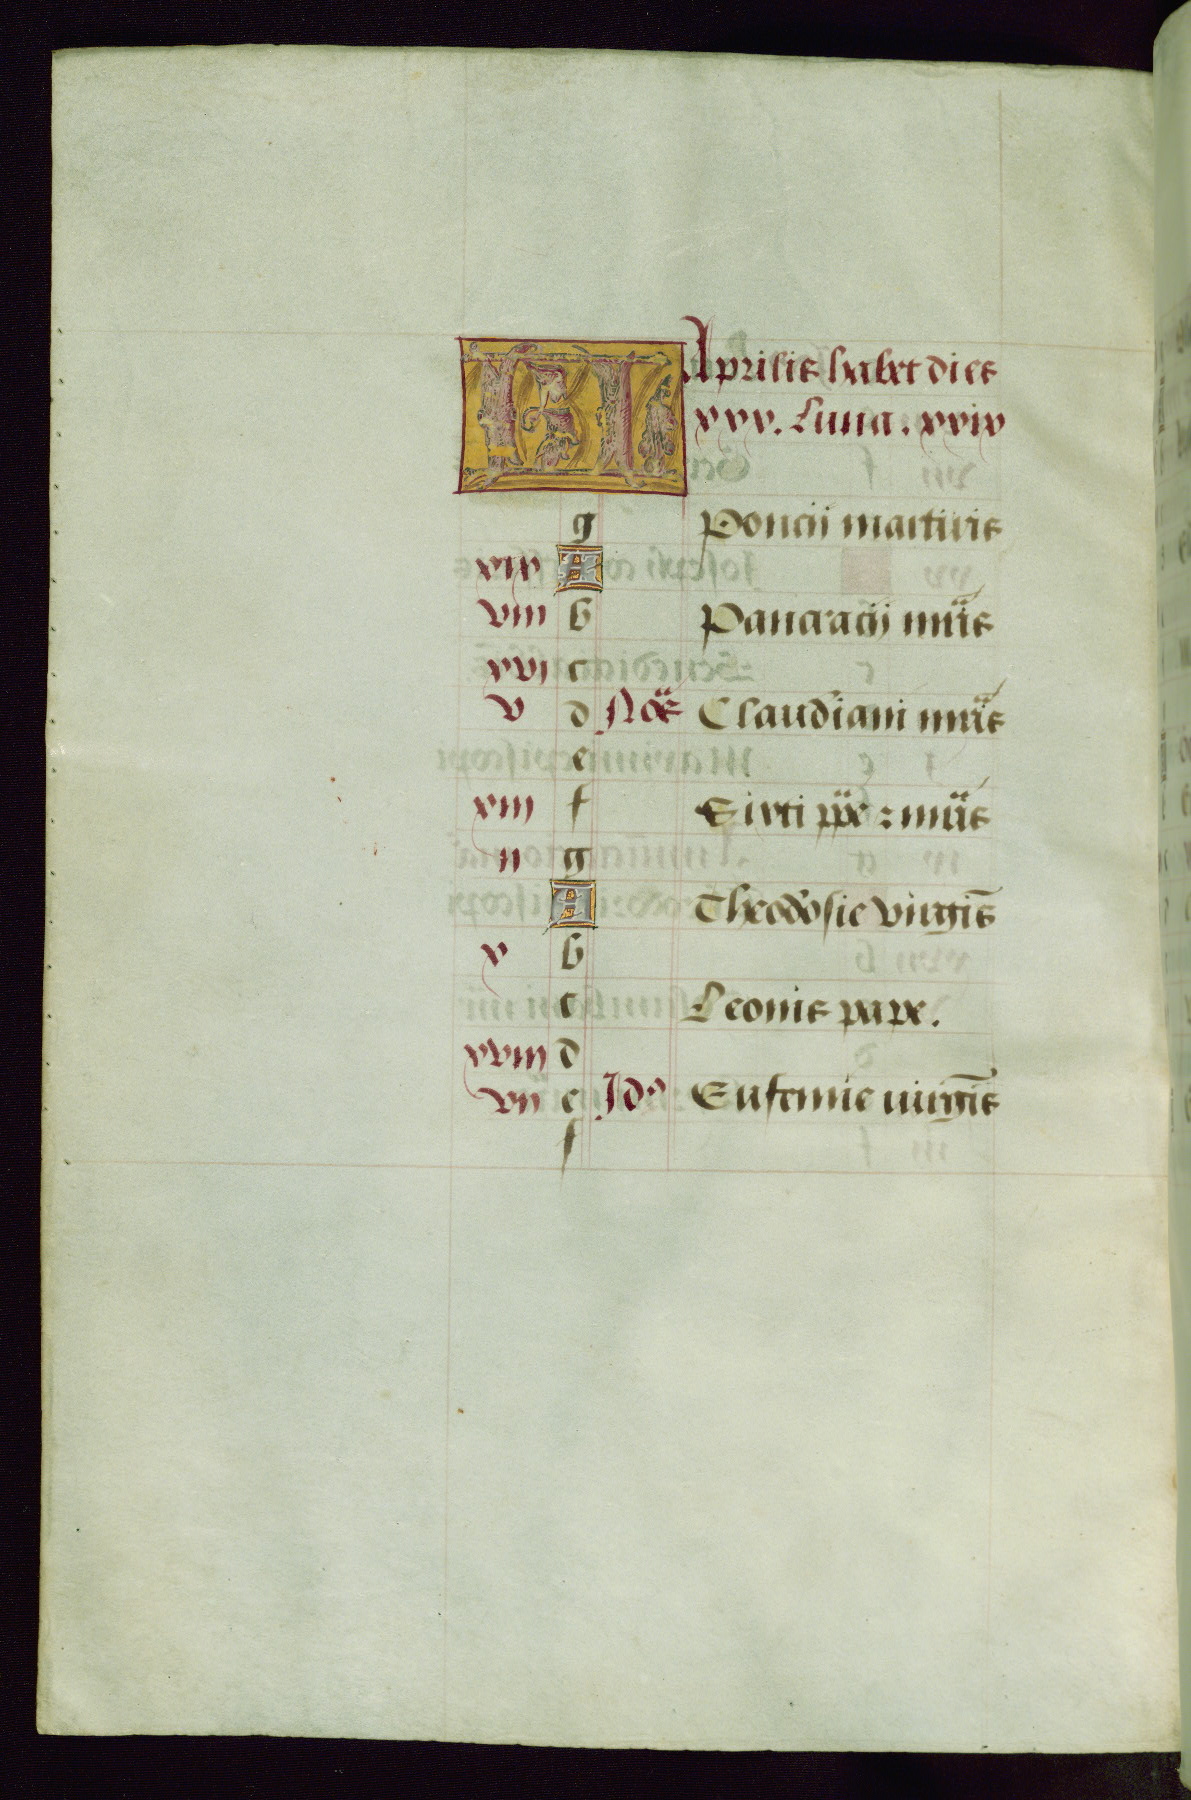 KL Aprilis habet dies
xxx. Luna. xxix
g Poncii martiris
xix A
viii b Pancracij mr̃is
xvi c
v d Noẽ Claudiani mr̃is
e
xiii f Sixti ppe : mr̃is
ii g
A Theodosie virgiñis
x b
c Leonis pape.
xviii d
vii e Idꝰ Eufemie uirgĩs
f